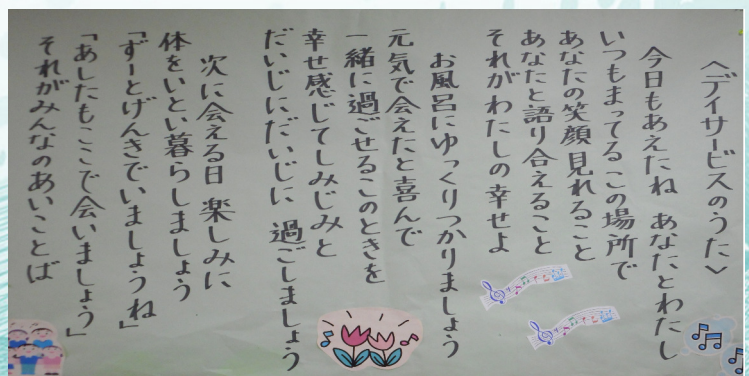 <デイサービスのうた>
今日もあえたね あなたとわたし
いつもまってる この場所で
あなたの笑顔見れること
あなたと語り合えること
それがわたしの幸せよ
お風呂にゆっくりつかりましょう
元気で会えたと喜んで
一緒に過ごせるこのときを
幸せ感じてしみじみと
だいじにだいじに 過ごしましょう
次に会える日 楽しみに
体をいとい暮らしましょう
「ずーとげんきでいましょうね」
「あしたもここで会いましょう」
それがみんなのあいことば